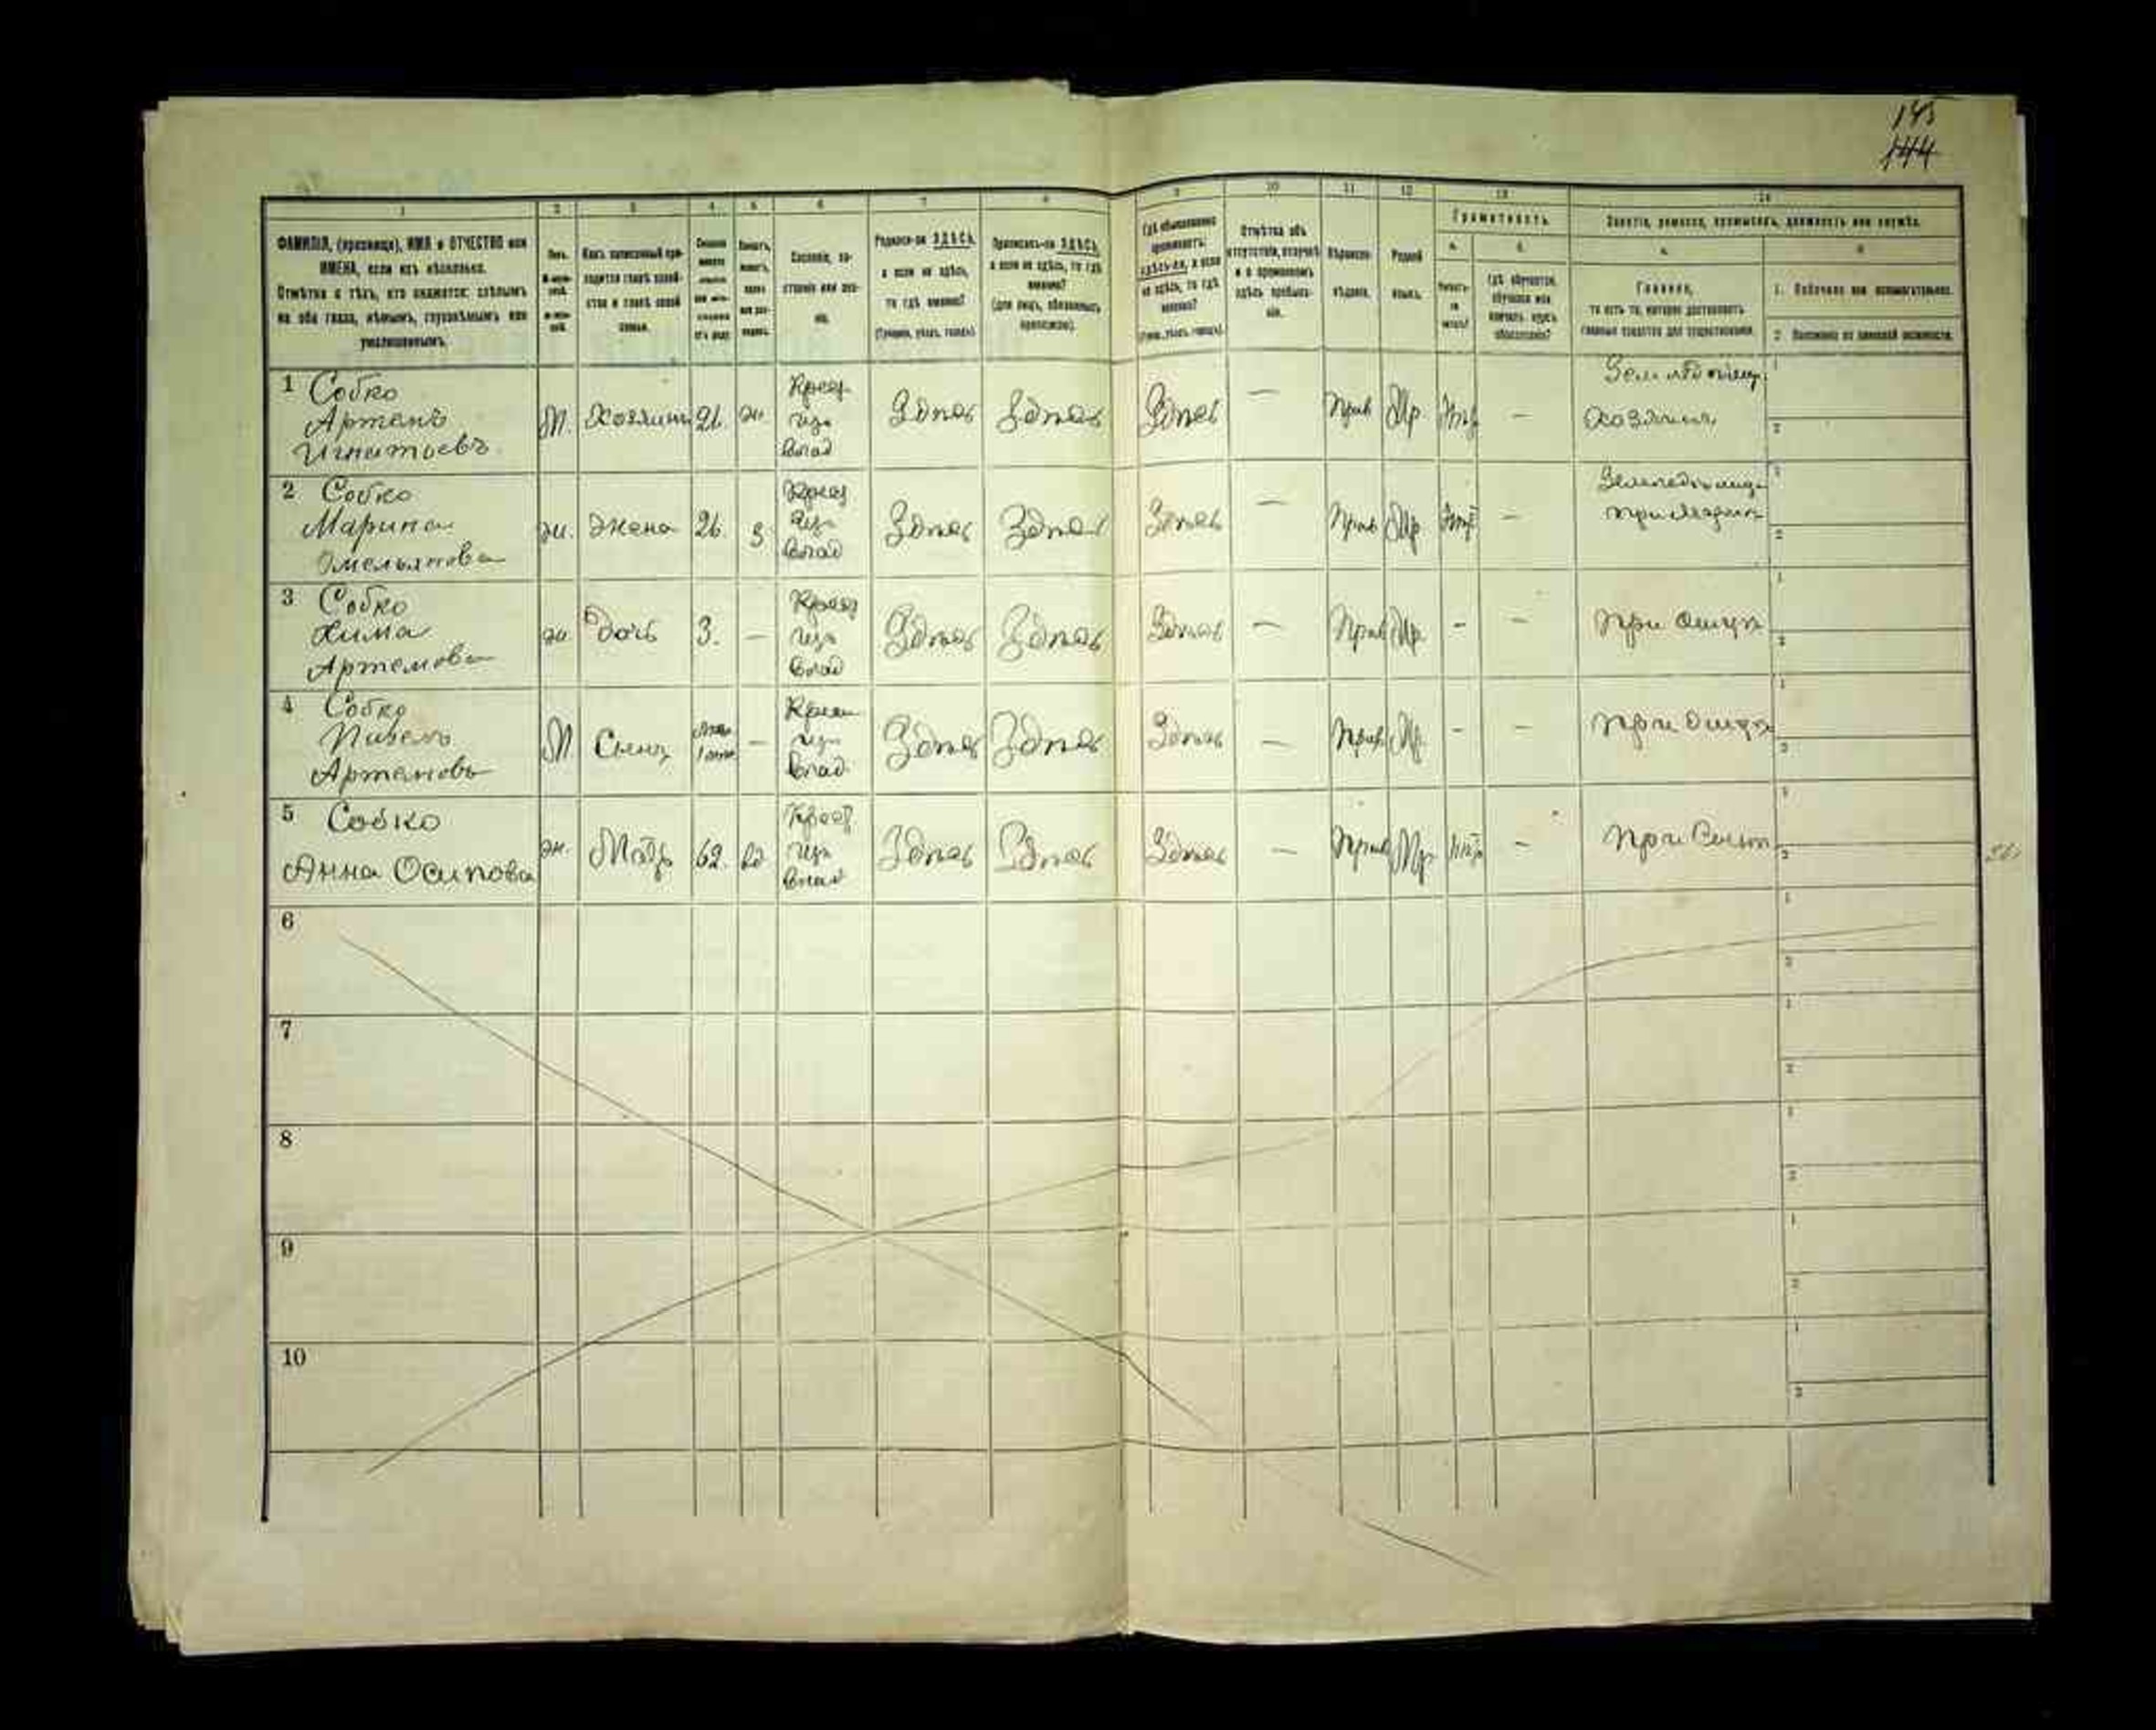 145
144
1 2 3 4 5 6 7 8 9 10 11 12 13 14
ФАМИЛІЯ, (прозвище), ИМЯ и ОТЧЕСТВО или
ИМЕНА, если ихъ нѣсколько.
Отмѣтка о тѣхъ, кто окажется: слѣпымъ
на оба глаза, нѣмымъ, глухонѣмымъ или
умалишеннымъ.
Полъ.
Какъ записанный при-
ходится главѣ хозяй-
ства и главѣ своей
семьи.
Сословіе, со-
стояніе или зва-
ніе.
Родился-ли ЗДѢСЬ,
а если не здѣсь,
то гдѣ именно?
(Губернія, уѣздъ, городъ).
Приписанъ-ли ЗДѢСЬ,
а если не здѣсь, то гдѣ
именно?
(для лицъ, обязанныхъ
припискою).
Гдѣ обыкновенно
проживаетъ:
здѣсь-ли, а если
не здѣсь, то гдѣ
именно?
(Губ., уѣздъ, городъ).
Отмѣтка объ
отсутствіи, отлучкѣ
и о временномъ
здѣсь пребыва-
ніи.
Вѣроиспо-
вѣданіе.
Родной
языкъ.
Грамотность.
а. б.
Умѣетъ-
ли
читать?
Гдѣ обучается,
обучался или
кончилъ курсъ
образованія?
Занятіе, ремесло, промыселъ, должность или служба.
а. б.
Главное,
то есть то, которое доставляетъ
главныя средства для существованія.
1. Побочное или вспомогательное.
2. Положеніе по воинской повинности.
1 Собко
Артемъ
Игнатьевъ
М. Хозяинъ 26. ж. Крест. изъ влад Здѣсь Здѣсь Здѣсь — Прав Мр. —
хозяинъ
1
2
2 Собко
Марина
Омельянова
ж. жена 26. З Крест изъ влад Здѣсь Здѣсь Здѣсь — Прав Мр. —
1
2
3 Собко
Хима
Артемова
ж. дочь 3. — Крест изъ влад Здѣсь Здѣсь Здѣсь — Прав Мр. - - при отцѣ
1
2
4 Собко
Павелъ
Артемовъ
М Сынъ — Крест изъ влад Здѣсь Здѣсь Здѣсь — Прав Мр. - — при отцѣ
1
2
5 Собко
Анна Осипова
ж. Мать 62. вд Крест изъ влад Здѣсь Здѣсь Здѣсь — Прав Мр. — при сынѣ
1
2
6
1
2
7
1
2
8
1
2
9
1
2
10
1
2